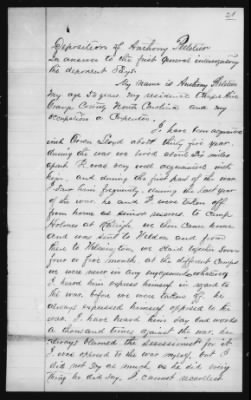 21
Deposition of Anthony
In answer to the first general interrogatory
the deponent says:
My name is Anthony
My age 52 years, my residence Chapel Hill
Orange County North Carolina and my
occupation a Carpenter.
I have been acquainted
with Lloyd about thirty five years.
during the war we lived about six miles
apart I was very well acquainted with
him, and during the first part of the war
I saw him frequently, during the last year
of the war he and I were taken off
from home as senior reserves to Camp
Holmes at Raleigh we then came home
and was sent to Weldon and from
there to Wilmington, we staid together some
four or five months at the different Camps
we were never in any engagements whatever,
I heard him express himself in regard to
the war, before we were taken off, he
always expressed himself opposed to the
war, I have heard him say bad words
a thousand times against the war, he
always blamed the secessionist for it
I was opposed to the war myself, but I
did not say as much as he did every
thing he did say, I cannot recollect